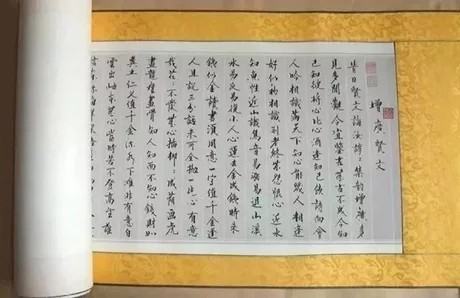 增廣賢文
昔日賢文誨汝諄〻集韵增廣多
見多聞觀今宜鑒古無古不成今知
己知彼將心比心酒逢知己飲詩向會
人吟相識滿天下知心能幾人相逢
好似初相識到老終無怨恨心近水
知魚性近山識鳥音易漲易退山溪
水易反易復小人心運去金成鐵時來
鐵似金讀書須用意一字值千金逢
人且說三分話未可全拋一片心有意
栽花〻不發無心插柳〻成蔭畫虎
畫龍難畫骨知人知面不知心錢財如
糞土仁义值千金流水下灘非有意白
雲出岫本無心當時若不登高望誰